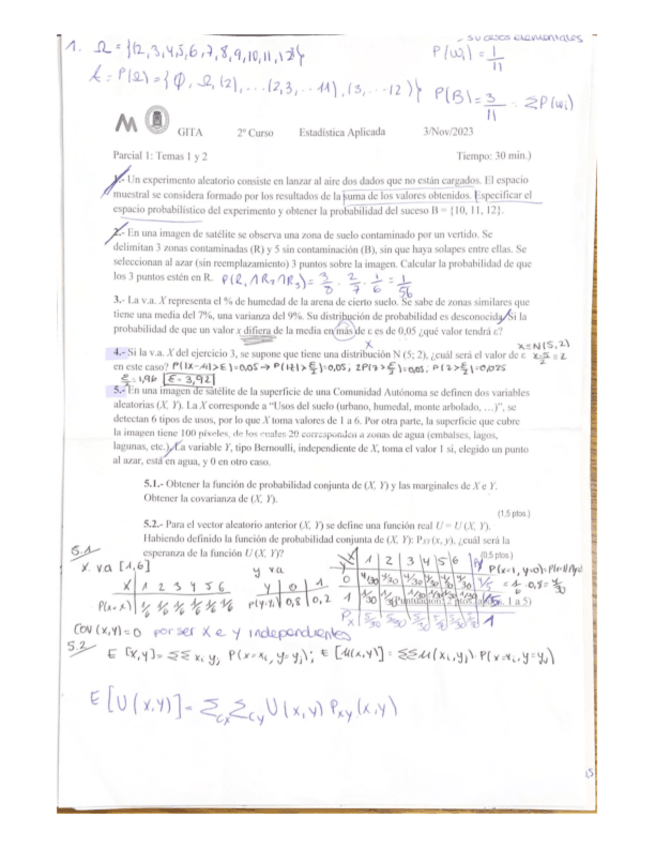 sucesos elementales
1. Ω = {(2, 3, 4, 5, 6, 7, 8, 9, 10, 11, 12)}
P(wᵢ) = 1/11
A = P(Ω) = {∅, Ω, (2), ... (2,3, .. 11), (3, ... 12)}
P(B) = 3/11 = ΣP(wᵢ)
GITA 2º Curso Estadística Aplicada 3/Nov/2023
Parcial 1: Temas 1 y 2 Tiempo: 30 min.)
1.- Un experimento aleatorio consiste en lanzar al aire dos dados que no están cargados. El espacio
muestral se considera formado por los resultados de la suma de los valores obtenidos. Especificar el
espacio probabilístico del experimento y obtener la probabilidad del suceso B = {10, 11, 12}.
2.- En una imagen de satélite se observa una zona de suelo contaminado por un vertido. Se
delimitan 3 zonas contaminadas (R) y 5 sin contaminación (B), sin que haya solapes entre ellas. Se
seleccionan al azar (sin reemplazamiento) 3 puntos sobre la imagen. Calcular la probabilidad de que
los 3 puntos estén en R. P(R₁∧R₂∧R₃) = 3/8 · 2/7 · 1/6 = 1/56
3.- La v.a. X representa el % de humedad de la arena de cierto suelo. Se sabe de zonas similares que
tiene una media del 7%, una varianza del 9%. Su distribución de probabilidad es desconocida. Si la
probabilidad de que un valor x difiera de la media en más de ε es de 0,05 ¿qué valor tendrá ε?
x ≡ N(5,2)
4.- Si la v.a. X del ejercicio 3, se supone que tiene una distribución N (5; 2), ¿cuál será el valor de ε x-5/2 = Z
en este caso? P(|X-M|>E)=0,05 → P(|Z|>E/2)=0,05; 2P(Z>E/2)=0,05; P(Z>E/2)=0,025
E/2 = 1,96 E = 3,92
5.- En una imagen de satélite de la superficie de una Comunidad Autónoma se definen dos variables
aleatorias (X, Y). La X corresponde a "Usos del suelo (urbano, humedal, monte arbolado, …)", se
detectan 6 tipos de usos, por lo que X toma valores de 1 a 6. Por otra parte, la superficie que cubre
la imagen tiene 100 píxeles, de los cuales 20 corresponden a zonas de agua (embalses, lagos,
lagunas, etc.). La variable Y, tipo Bernoulli, independiente de X, toma el valor 1 si, elegido un punto
al azar, está en agua, y 0 en otro caso.
5.1.- Obtener la función de probabilidad conjunta de (X, Y) y las marginales de X e Y.
Obtener la covarianza de (X, Y).
(1,5 ptos.)
5.2.- Para el vector aleatorio anterior (X, Y) se define una función real U = U (X, Y).
Habiendo definido la función de probabilidad conjunta de (X, Y): Pxy (x, y), ¿cuál será la
esperanza de la función U (X, Y)?
(0,5 ptos.)
5.1
x va [1,6]
y va
X 1 2 3 4 5 6
P(x=xᵢ) 1/6 1/6 1/6 1/6 1/6 1/6
Y 0 1
P(Y=yᵢ) 0,8 0,2
X 1 2 3 4 5 6 Py
0 4/30 4/30 4/30 4/30 4/30 4/30 4/5
1 1/30 1/30 1/30 1/30 1/30 1/30 1/5
Px 5/30 5/30 5/30 5/30 5/30 5/30 1
Cov(x,y)=0 por ser X e Y independientes
5.2
E[X,Y] = ΣΣ xᵢ yⱼ P(x=xᵢ, y=yⱼ); E[M(x,y)] = ΣΣ M(xᵢ,yⱼ) P(x=xᵢ, y=yⱼ)
E[U(x,y)] = Σcx Σcy U(x,y) Pxy(x,y)